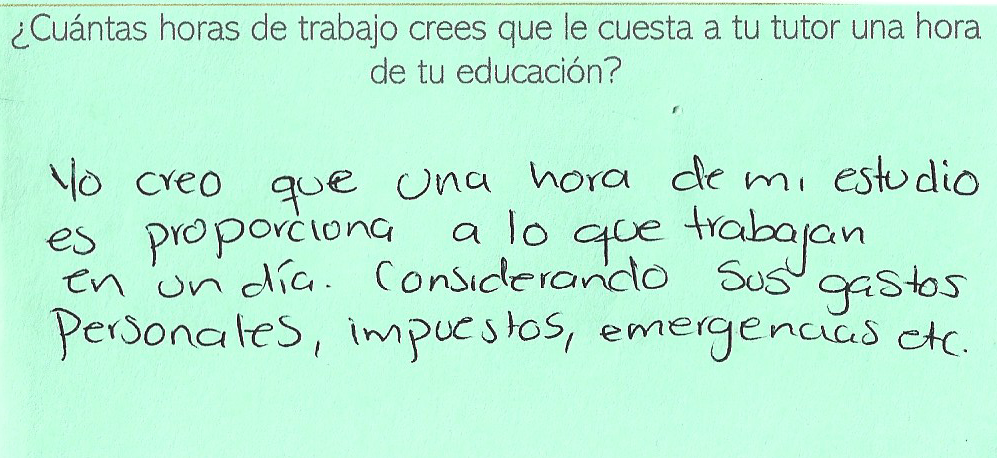 ¿Cuántas horas de trabajo crees que le cuesta a tu tutor una hora
de tu educación?
Yo creo que una hora de mi estudio
es proporciona a lo que trabajan
en un día. Considerando sus gastos
Personales, impuestos, emergencias etc.